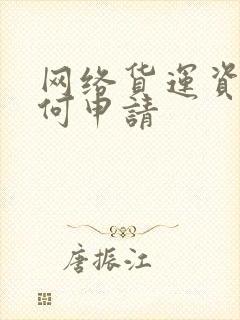 网络货運資
何申請
唐振江